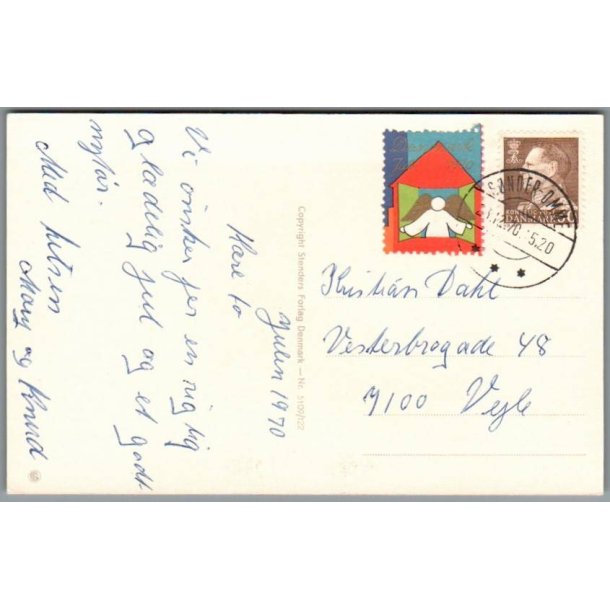 Julen 1970
Kære to
Vi ønsker jer en rigtig
glædelig jul og et godt
nytår.
Med hilsen
Mary og Knud
Copyright Stenders Forlag Danmark — Nr.
Kristian Dahl
Vesterbrogade 48
7100 Vejle
SØNDER OMME
DANMARK